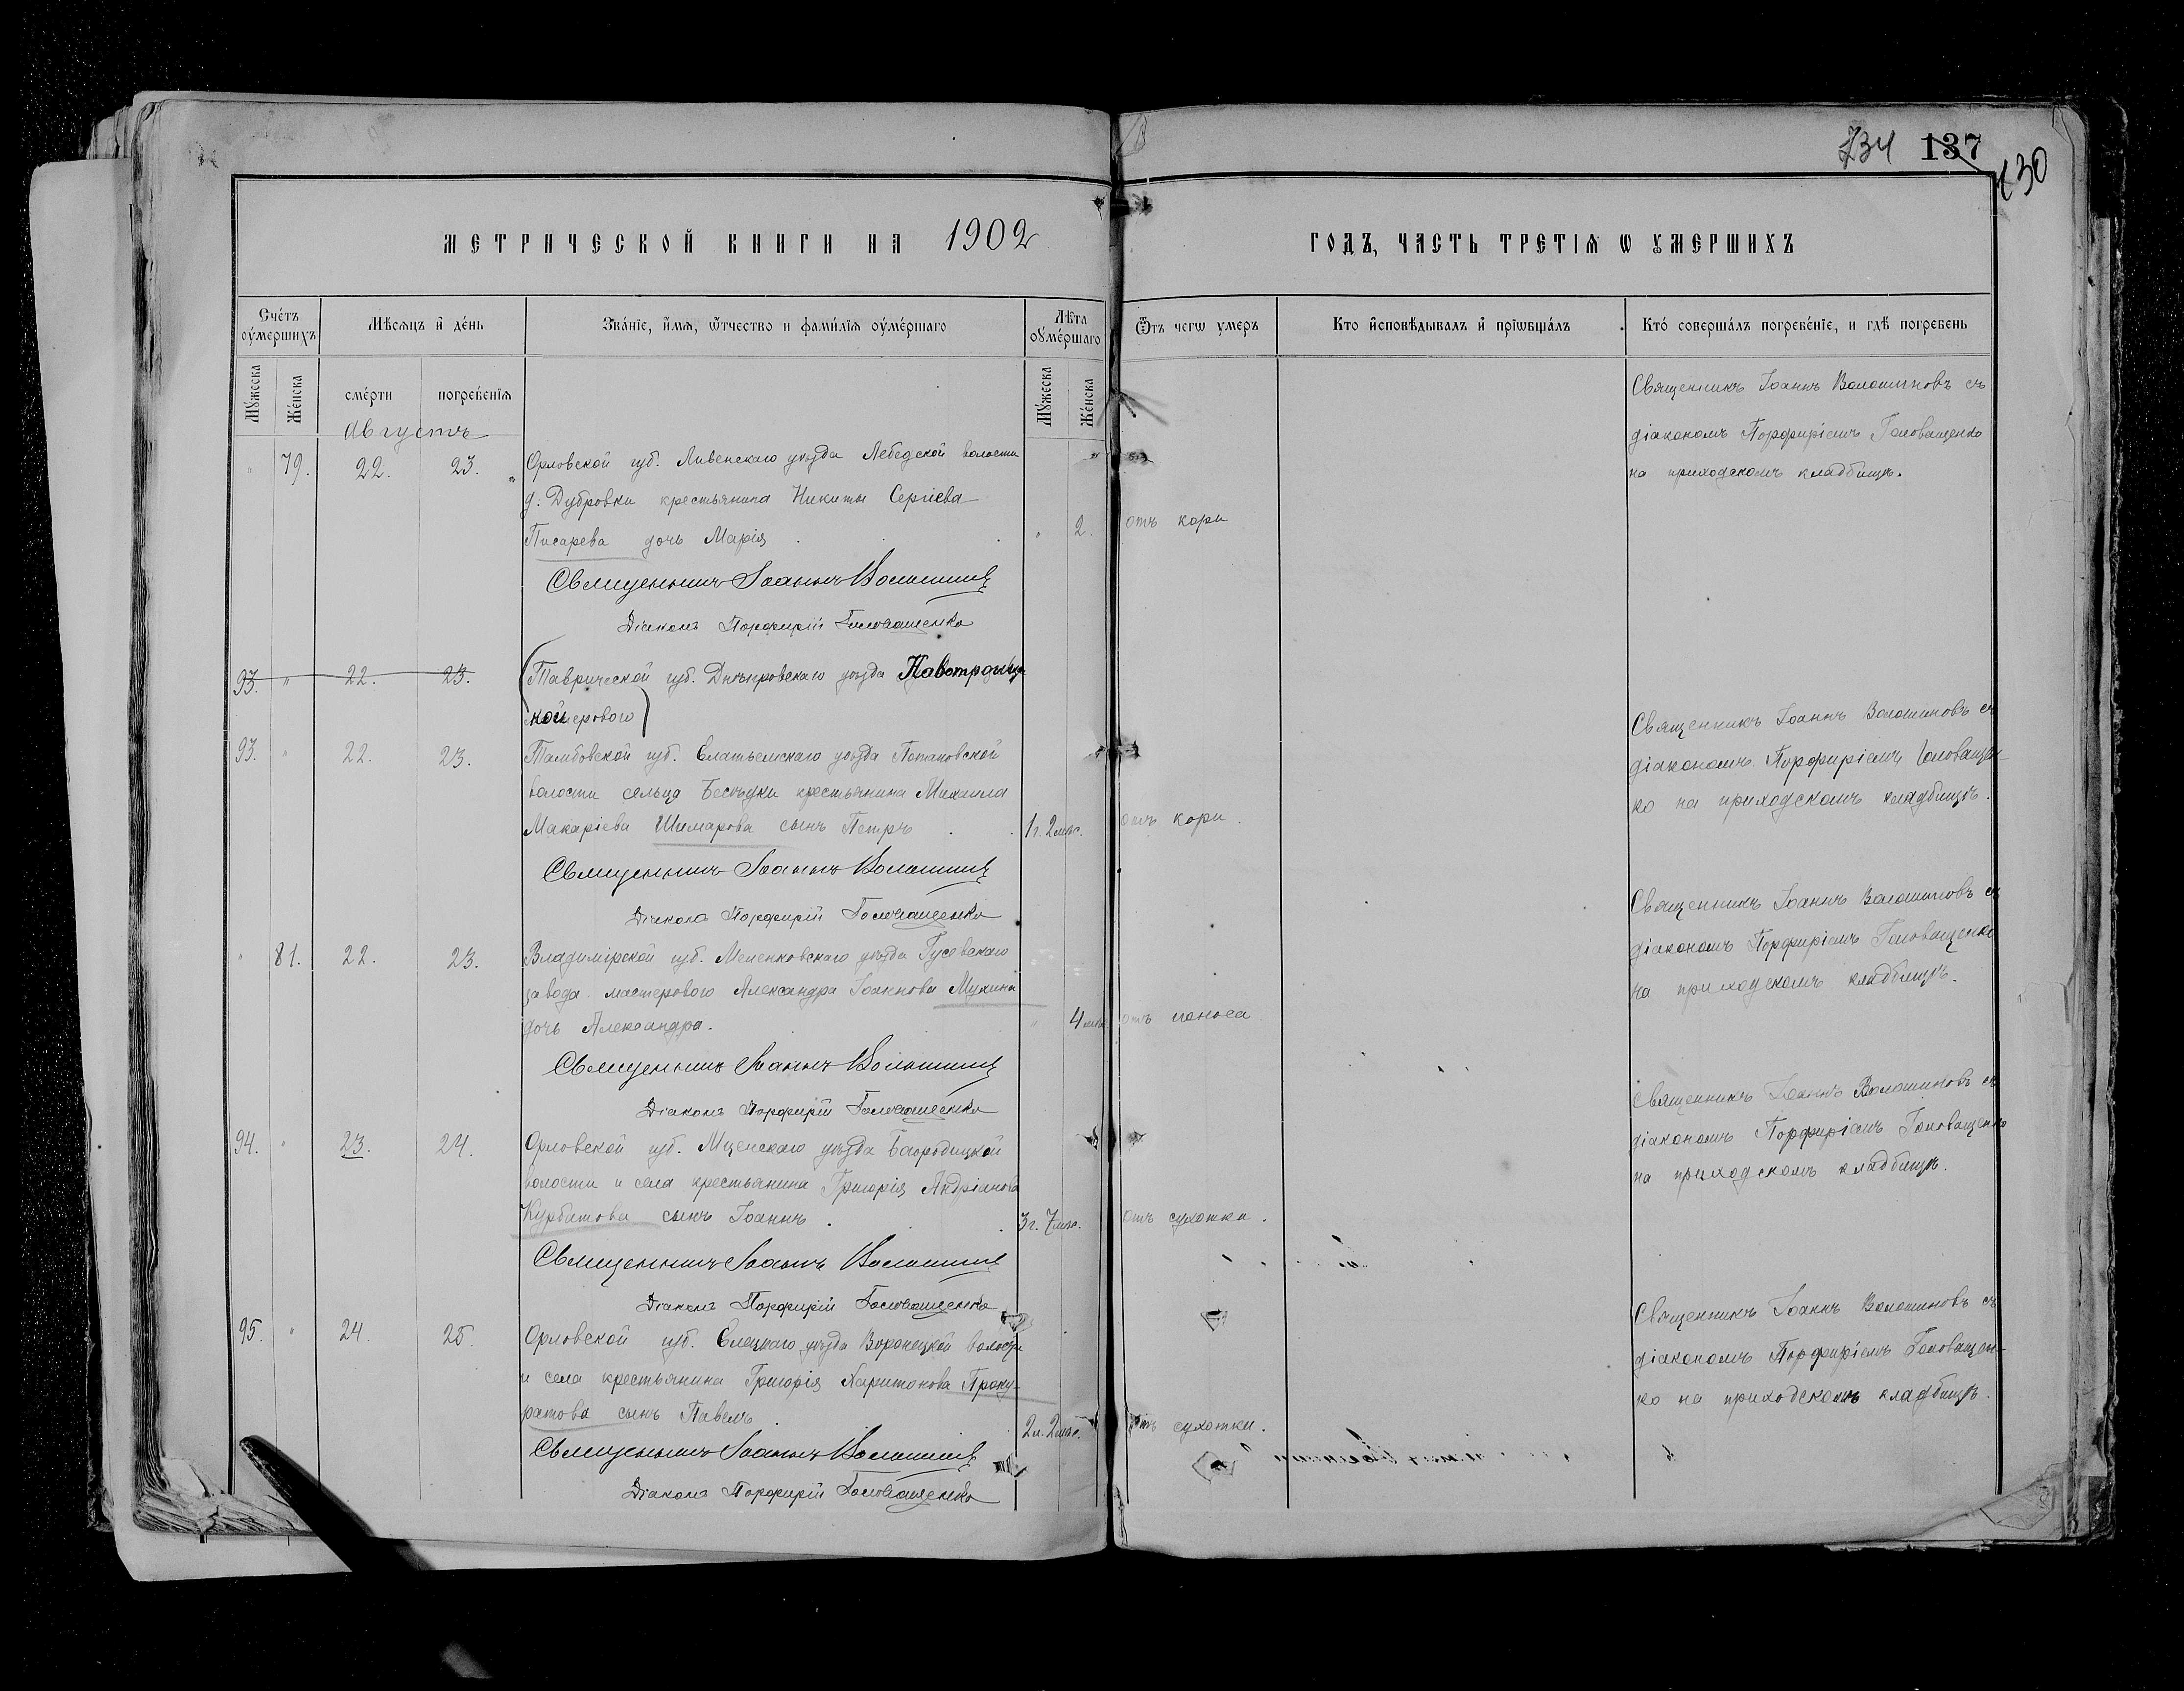 734 137
130
МЕТРИЧЕСКОЙ КНИГИ НА 1902 ГОДЪ, ЧАСТЬ ТРЕТІѦ Ѡ УМЕРШИХЪ
Счетъ оумершихъ
Мѣсяцъ и день
Званіе, имѧ, ѿчество и фамиліѧ оумершаго
Лѣта оумершаго
Ѿ чегѡ умеръ
Кто исповѣдывалъ и пріѡбщалъ
Кто совершалъ погребеніе, и гдѣ погребенъ
Мужеска Женска смерти погребеніѧ Мужеска Женска
Августъ
" 79. 22. 23. Орловской губ. Ливенскаго уѣзда Лебедской волости
д. Дубровки крестьянина Никиты Сергіева
Писарева дочь Марія " 2. отъ кори
Священникъ Іоаннъ Волошиновъ съ
діакономъ Порфиріемъ Головащенко
на приходскомъ кладбищѣ.
Священникъ Іоаннъ Волошиновъ
Діаконъ Порфирій Головащенко
93. " 22. 23. (Таврической губ. Днѣпровскаго уѣзда Новотроиц
кой)
93. " 22. 23. Тамбовской губ. Елатьемскаго уѣзда Потаповской
волости сельца Бесѣдки крестьянина Михаила
Макаріева Шимарова сынъ Петръ 1 г. 2 мѣс. отъ кори.
Священникъ Іоаннъ Волошиновъ съ
діакономъ Порфиріемъ Головащен-
ко на приходскомъ кладбищѣ.
Священникъ Іоаннъ Волошиновъ
Діаконъ Порфирій Головащенко
" 81. 22. 23. Владимірской губ. Меленковскаго уѣзда Гусевскаго
завода мастерового Александра Іоаннова Мукина
дочь Александра. " 4 мѣс. отъ поноса
Священникъ Іоаннъ Волошиновъ съ
діакономъ Порфиріемъ Головащенко
на приходскомъ кладбищѣ.
Священникъ Іоаннъ Волошиновъ
Діаконъ Порфирій Головащенко
94. " 23. 24. Орловской губ. Мценскаго уѣзда Богородицкой
волости и села крестьянина Григорія Андріанова
Курбатова сынъ Іоаннъ. 3 г. 7 мѣс. отъ сухотки.
Священникъ Іоаннъ Волошиновъ съ
діакономъ Порфиріемъ Головащенко
на приходскомъ кладбищѣ.
Священникъ Іоаннъ Волошиновъ
Діаконъ Порфирій Головащенко
95. " 24. 25. Орловской губ. Елецкаго уѣзда Воронецкой волости
и села крестьянина Григорія Харитонова Проку-
ратова сынъ Павелъ. 2 л. 2 мѣс. отъ сухотки.
Священникъ Іоаннъ Волошиновъ съ
діакономъ Порфиріемъ Головащен-
ко на приходскомъ кладбищѣ.
Священникъ Іоаннъ Волошиновъ
Діаконъ Порфирій Головащенко